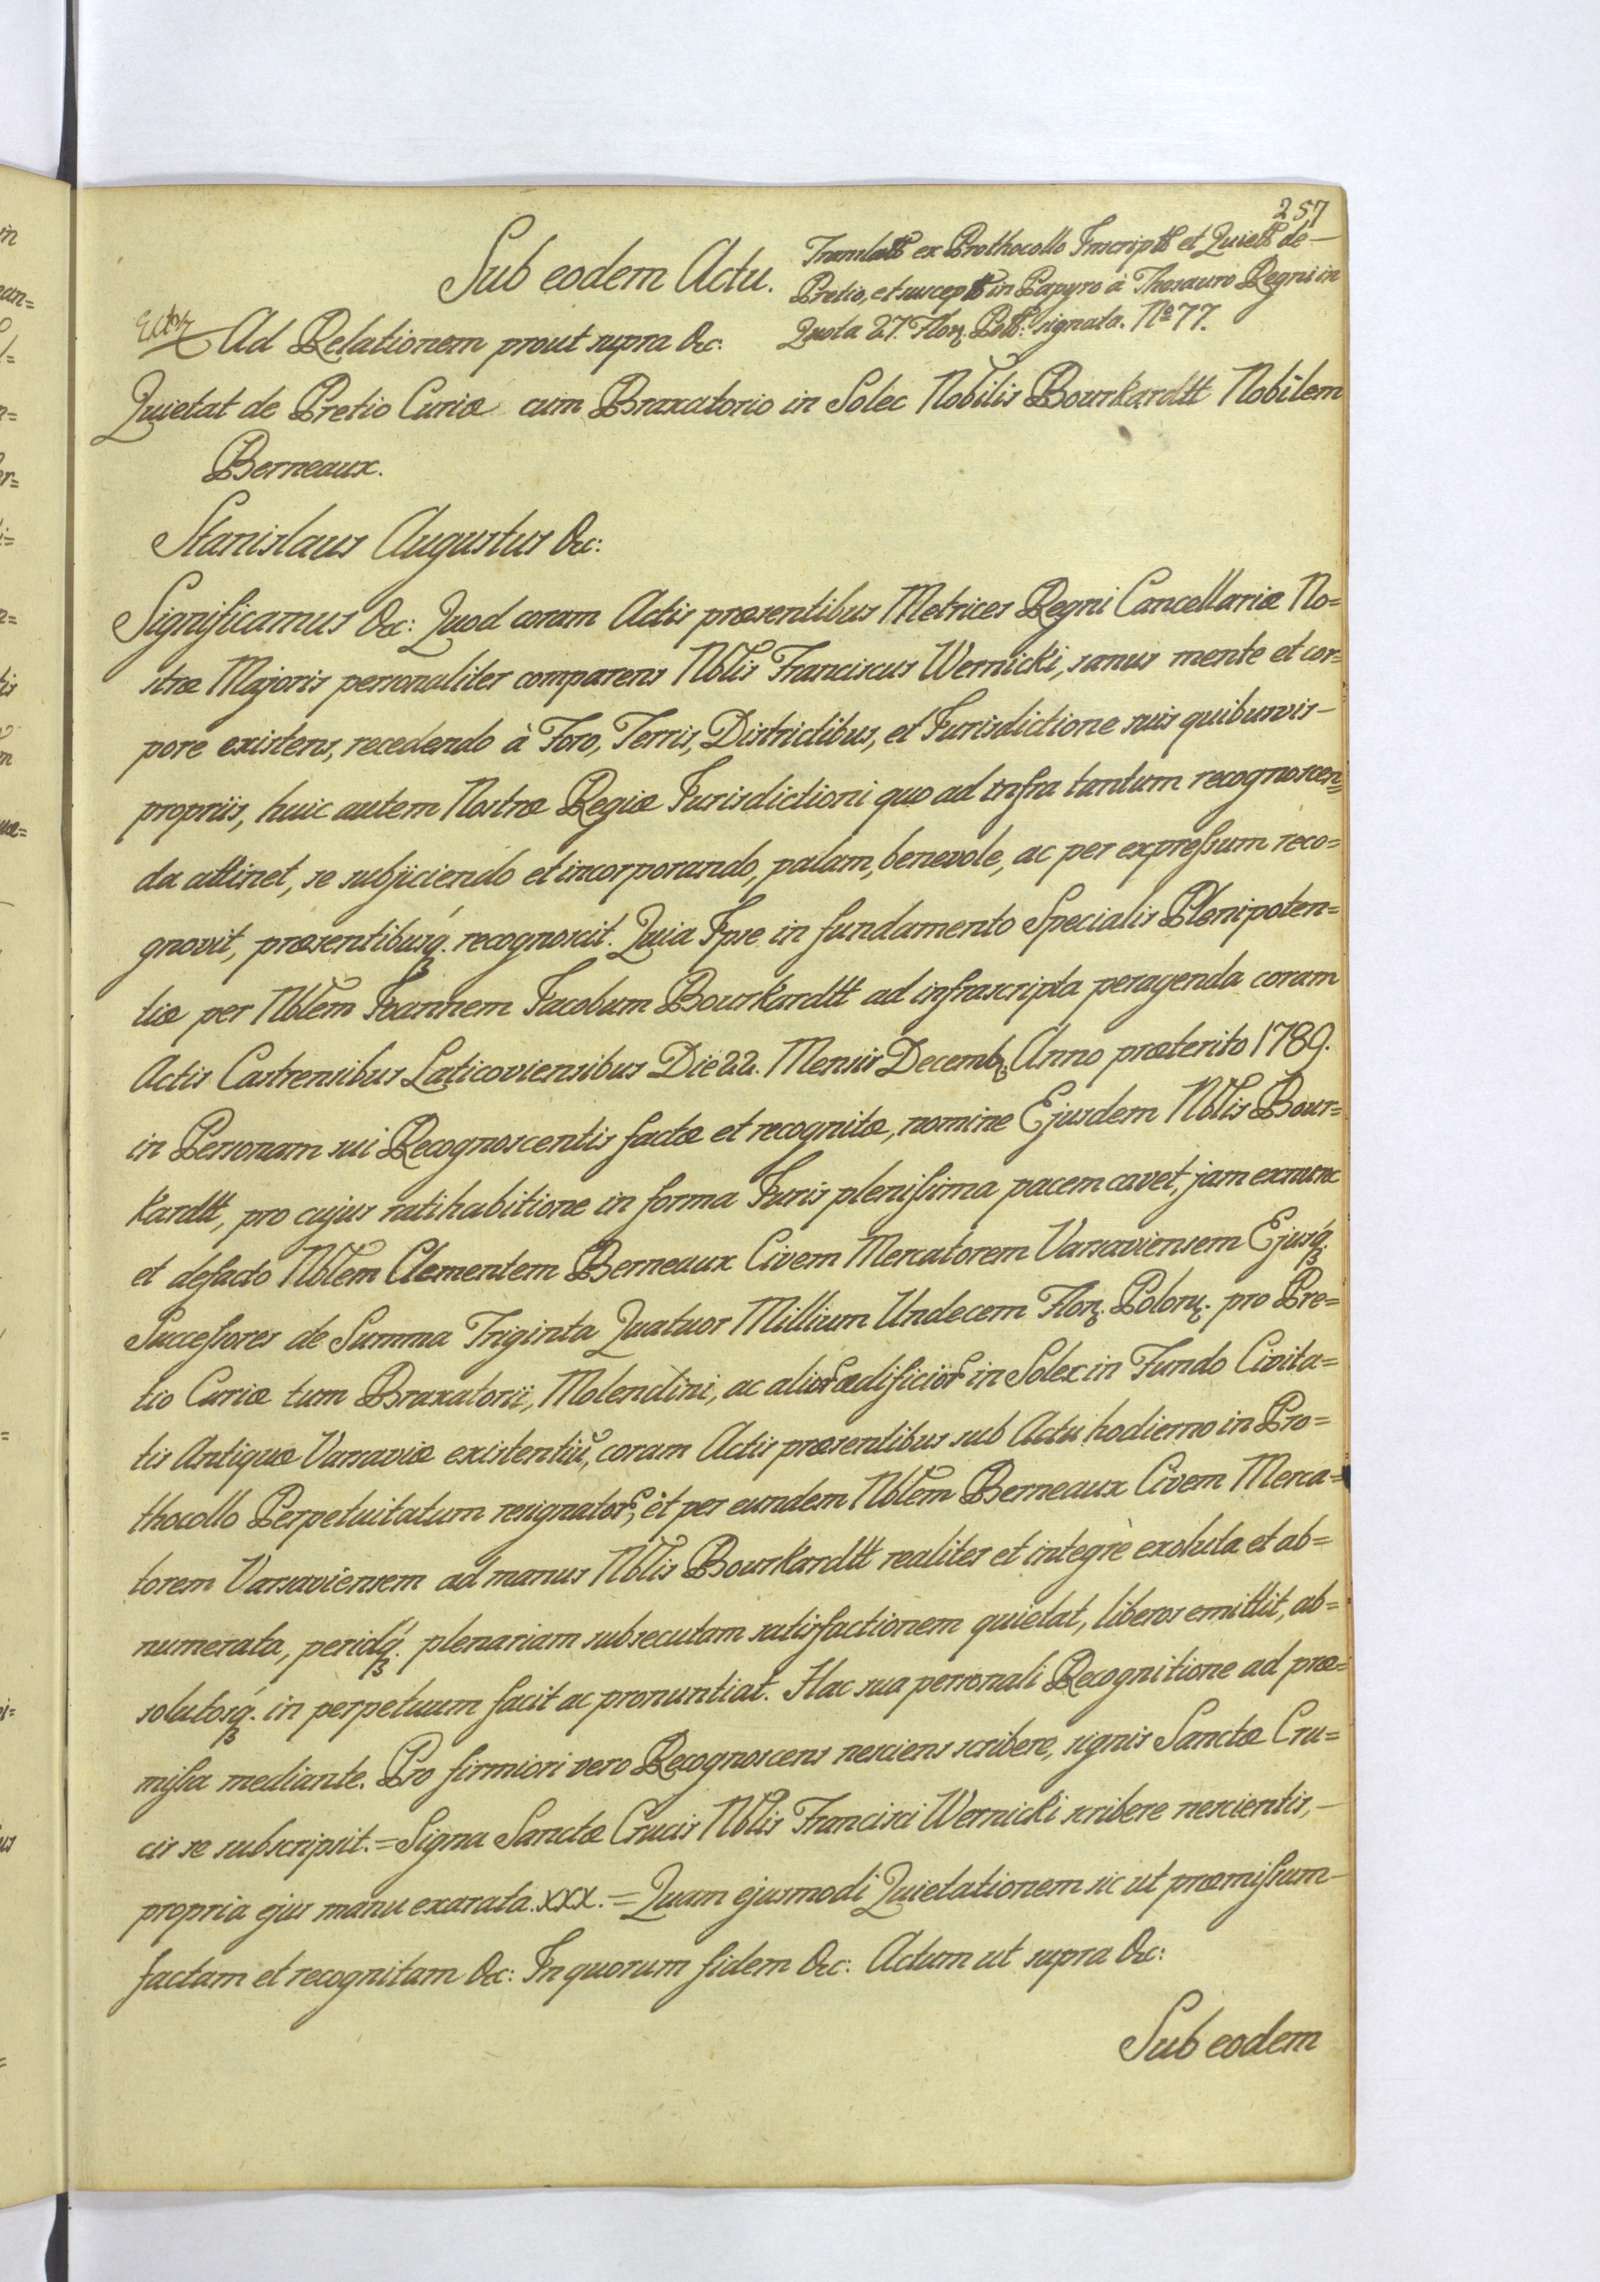 257
Sub eodem Actu.
Translatt ex Prothocollo Inscriptt et Quiett de —
Pretio, et susceptt in Papyro à Thesauro Regni in
Quota 27. Flor. Poll: signata. No 77.
Ad Relationem prout supra &c:
Quietat de Pretio Curiæ cum Braxatorio in Solec Nobilis Bourkardtt Nobilem
Berneaux.
Stanislaus Augustus &c:
Significamus &c: Quod coram Actis præsentibus Metrices Regni Cancellariæ No=
stræ Majoris personaliter comparens Nblis Franciscus Wernicki, sanus mente et cor=
pore existens, recedendo à Foro, Terris, Districtibus, et Jurisdictione suis quibusvis —
propriis, huic autem Nostræ Regiæ Jurisdictioni quo ad infra tantum recognoscen=
da attinet, se subjiciendo et incorporando, palam, benevole, ac per expressum reco=
gnovit, præsentibusq. recognoscit. Quia Ipse in fundamento Specialis Plenipoten=
tiæ per Nblem Joannem Jacobum Bourkardtt ad infrascripta peragenda coram
Actis Castrensibus Laticoviensibus Die 22. Mensis Decemb. Anno præterito 1789.
in Personam sui Recognoscentis factæ et recognitæ, nomine Ejusdem Nblis Bour=
kardtt, pro cujus ratihabitione in forma Juris plenissima pacem cavet, jam exnunc
et defacto Nblem Clementem Berneaux Civem Mercatorem Varsaviensem Ejusq.
Successores de Summa Triginta Quatuor Millium Undecem Flor. Polon. pro Pre=
tio Curiæ tum Braxatorii, Molendini, ac alior ædificior in Solec in Fundo Civita=
tis Antiquæ Varsaviæ existentiu, coram Actis præsentibus sub Actu hodierno in Pro=
thocollo Perpetuitatum resignator, et per eundem Nblem Berneaux Civem Merca=
torem Varsaviensem ad manus Nblis Bourkardtt realiter et integrè exoluta et ab=
numerata, peridq. plenariam subsecutam satisfactionem quietat, liberos emittit, ab=
solutosq. in perpetuum facit ac pronuntiat. Hac sua personali Recognitione ad præ=
missa mediante. Pro firmiori vero Recognoscens nesciens scribere, signis Sanctæ Cru=
cis se subscripsit. = Signa Sanctæ Crucis Nblis Francisci Wernicki scribere nescientis, —
propria ejus manu exarata. xxx. = Quam ejusmodi Quietationem sic ut præmissum —
factam et recognitam &c: In quorum fidem &c: Actum ut supra &c:
Sub eodem